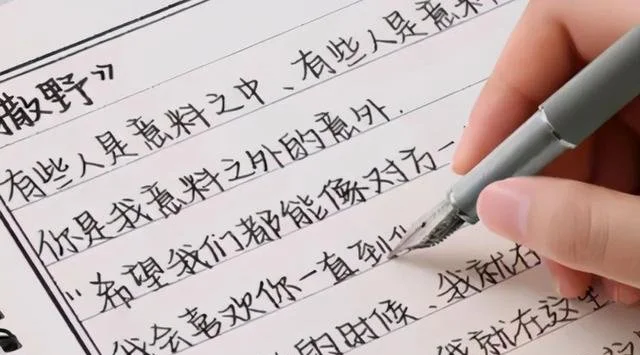 撒野》
有些人是意料之中、有些人是意料
你是我意料之外的意外.
"希望我们都能像对方一
我会喜欢你一直到
的时候、我就在
我就在这里